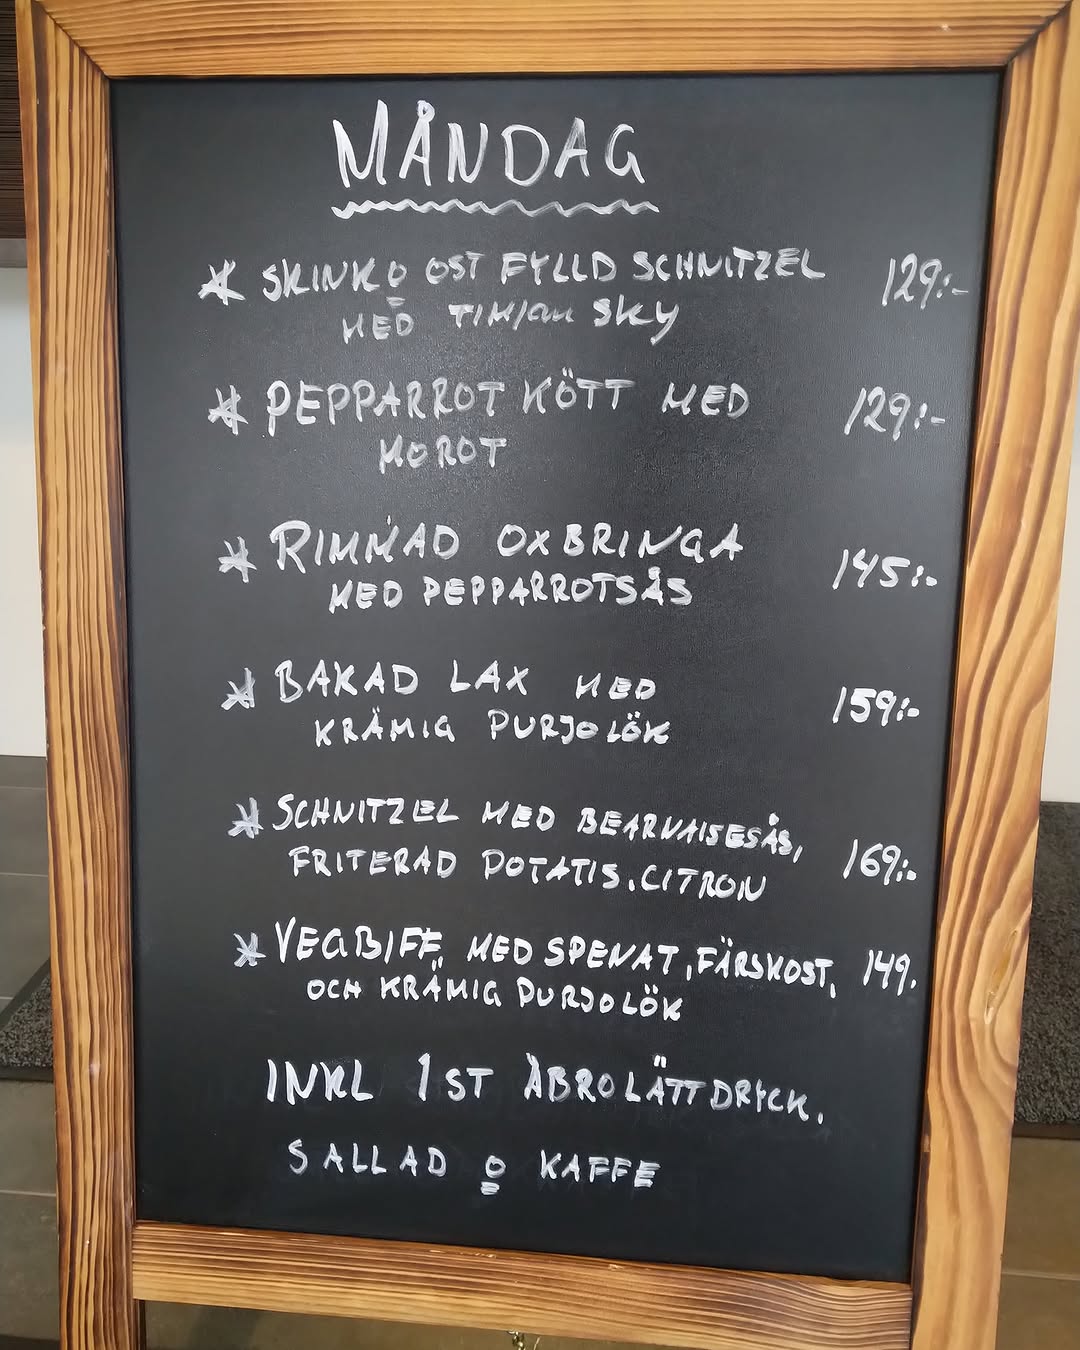 MÅNDAG
* SKINK O OST FYLLD SCHNITZEL 129:-
MED TIMJAN SKY
* PEPPARROT KÖTT MED 129:-
MOROT
* RIMMAD OXBRINGA 145:-
MED PEPPARROTSÅS
* BAKAD LAX MED 159:-
KRÄMIG PURJOLÖK
* SCHNITZEL MED BEARNAISESÅS, 169:-
FRITERAD POTATIS, CITRON
* VEGBIFF, MED SPENAT, FÄRSKOST, 149.
OCH KRÄMIG PURJOLÖK
INKL 1 ST ÅBRO LÄTTDRYCK,
SALLAD O KAFFE